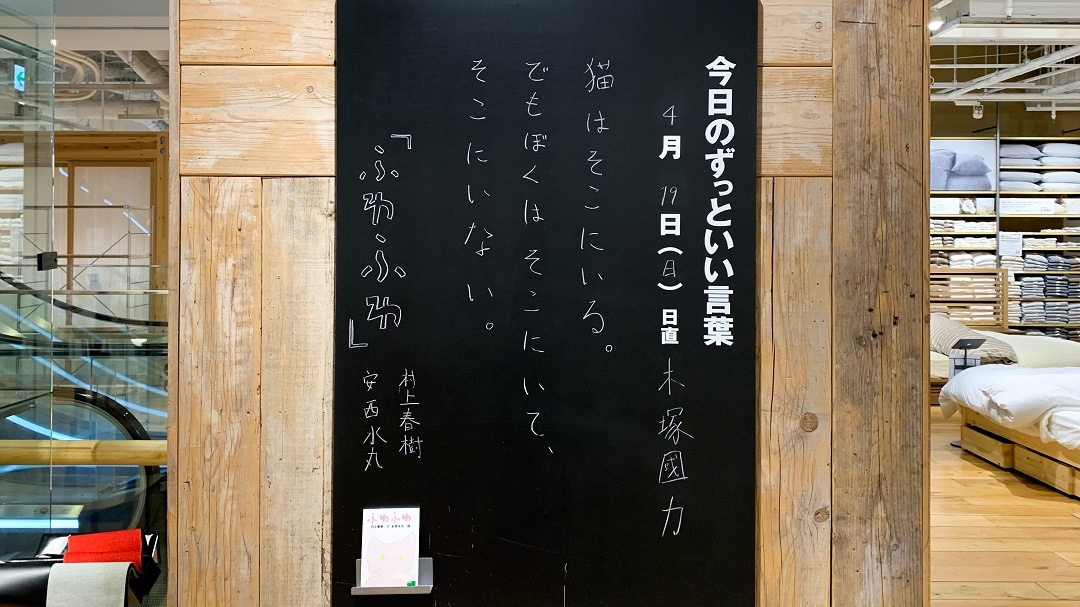 今日のずっといい言葉
4月19日(日)日直 木塚國力
猫はそこにいる。
でもぼくはそこにいて、
そこにいない。
『ふわふわ』
村上春樹
安西水丸
ふわふわ